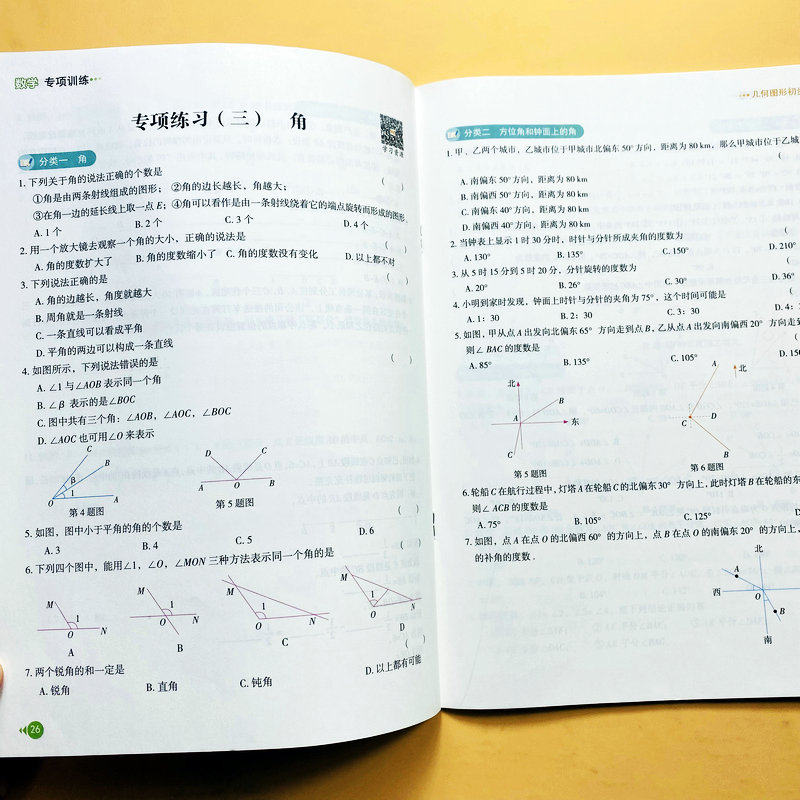 数学 专项训练
专项练习（三） 角
学习资源
分类一 角
1. 下列关于角的说法正确的个数是 （ ）
①角是由两条射线组成的图形； ②角的边长越长，角越大；
③在角一边的延长线上取一点 E；④角可以看作是由一条射线绕着它的端点旋转而形成的图形.
A. 1 个 B. 2 个 C. 3 个 D. 4 个
2. 用一个放大镜去观察一个角的大小，正确的说法是 （ ）
A. 角的度数扩大了 B. 角的度数缩小了 C. 角的度数没有变化 D. 以上都不对
3. 下列说法正确的是 （ ）
A. 角的边越长，角度就越大
B. 周角就是一条射线
C. 一条直线可以看成平角
D. 平角的两边可以构成一条直线
4. 如图所示，下列说法错误的是 （ ）
A. ∠1 与∠AOB 表示同一个角
B. ∠β 表示的是∠BOC
C. 图中共有三个角：∠AOB，∠AOC，∠BOC
D. ∠AOC 也可用∠O 来表示
C B β 1 O A
D C A O B
第 4 题图 第 5 题图
5. 如图，图中小于平角的角的个数是 （ ）
A. 3 B. 4 C. 5 D. 6
6. 下列四个图中，能用∠1，∠O，∠MON 三种方法表示同一个角的是 （ ）
M 1 O N
M 1 O N
M 1 O N
M 1 O N
A B C D
7. 两个锐角的和一定是 （ ）
A. 锐角 B. 直角 C. 钝角 D. 以上都有可能
26
几何图形初
分类二 方位角和钟面上的角
1. 甲、乙两个城市，乙城市位于甲城市北偏东 50° 方向，距离为 80 km，那么甲城市位于乙城市
A. 南偏东 50° 方向，距离为 80 km
B. 南偏西 50° 方向，距离为 80 km
C. 南偏东 40° 方向，距离为 80 km
D. 南偏西 40° 方向，距离为 80 km
2. 当钟表上显示 1 时 30 分时，时针与分针所成夹角的度数为
A. 130° B. 135° C. 150° D. 210°
3. 从 5 时 15 分到 5 时 20 分，分针旋转的度数为
A. 20° B. 26° C. 30° D. 36°
4. 小明到家时发现，钟面上时针与分针的夹角为 75°，这个时间可能是
A. 1：30 B. 2：30 C. 3：30 D. 4：
5. 如图，甲从点 A 出发向北偏东 65° 方向走到点 B，乙从点 A 出发向南偏西 20° 方向走
则∠ BAC 的度数是
A. 85° B. 135° C. 105° D.
北 B A 东 C
A 北 C D B
第 5 题图 第 6 题图
6. 轮船 C 在航行过程中，灯塔 A 在轮船 C 的北偏东 30° 方向上，此时灯塔 B 在轮船的东
则∠ ACB 的度数是
A. 75° B. 105° C. 125° D
7. 如图，点 A 在点 O 的北偏西 60° 的方向上，点 B 在点 O 的南偏东 20° 的方向上，
的补角的度数.
北
A
西 O
B
南